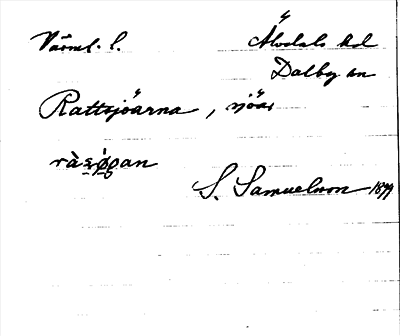 Värml. l. Älvdals hd
Dalby sn
Rattsjöarna, sjöar
ràsǿɷan
S. Samuelsson 1899